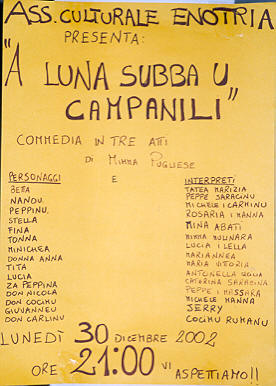 ASS. CULTURALE ENOTRIA
PRESENTA:
"A LUNA SUBBA U
CAMPANILI"
COMMEDIA IN TRE ATTI
DI MIMMA PUGLIESE
PERSONAGGI E INTERPRETI
BETTA
NANDU
PEPPINU
STELLA
FINA
TONNA
MINICHEA
DONNA ANNA
TITA
LUCIA
ZA PEPPINA
DON NICOLA
DON COCIMU
GIUVANNEU
DON CARLINU
TATEA MARIZIA
PEPPE SARACINU
MICHELE I CARMINU
ROSARIA I NANNA
MINA ABATI
MIMMA MULINARA
LUCIA I LELLA
MARIANNEA
MARIA VITTORIA
ANTONELLA
CATERINA SARACINA
PEPPE I MASSARA
MICHELE NANNA
JERRY
COCIMU RUMANU
LUNEDÌ 30 DICEMBRE 2002
ORE 21:00 VI ASPETTIAMO!!